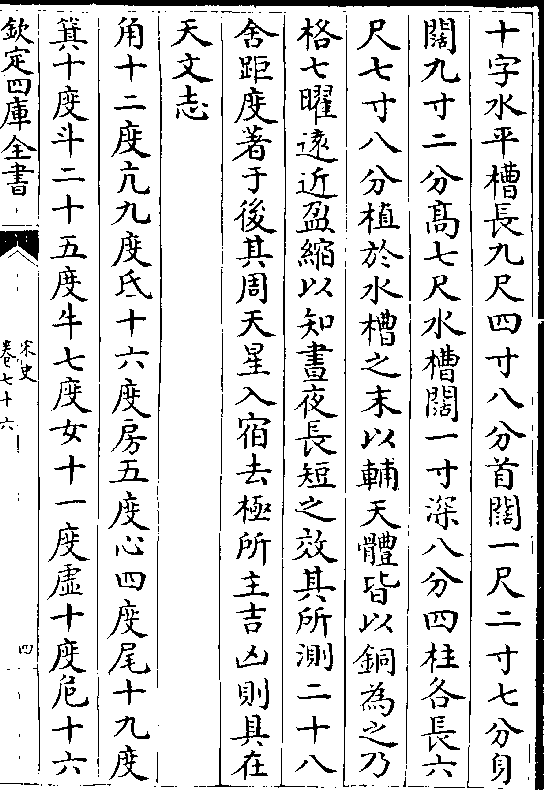 十字水平槽長九尺四寸八分首闊一尺二寸七分身
闊九寸二分髙七尺水槽闊一寸深八分四柱各長六
尺七寸八分植於水槽之末以輔天體皆以銅為之乃
格七曜逺近盈縮以知晝夜長短之效其所測二十八
舍距度著于後其周天星入宿去極所主吉凶則具在
天文志
角十二度亢九度氐十六度房五度心四度尾十九度
箕十度斗二十五度牛七度女十一度虛十度危十六
欽定四庫全書
宋史
卷七十六
四